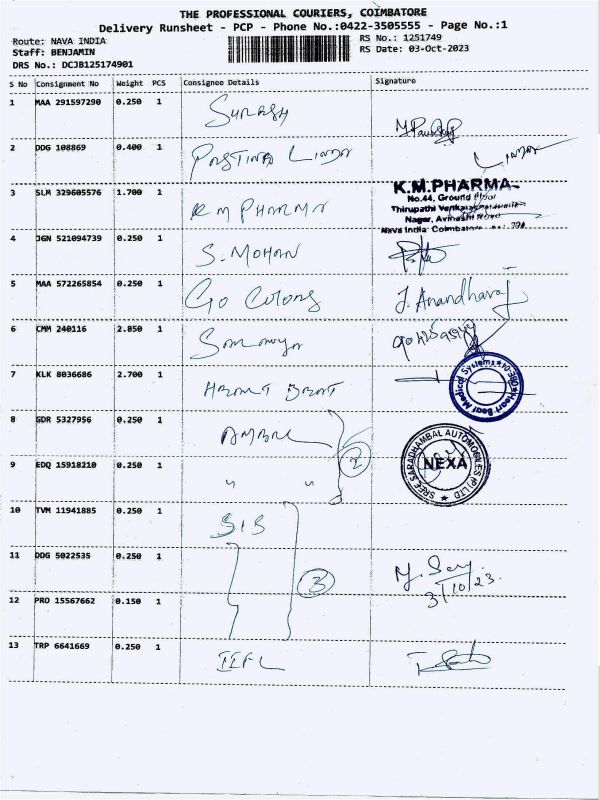 THE PROFESSIONAL COURIERS, COIMBATORE
Delivery Runsheet - PCP - Phone No.:0422-3505555 - Page No.:1
Route: NAVA INDIA
RS No.: 1251749
Staff: BENJAMIN
RS Date: 03-Oct-2023
DRS No.: DCJB125174901
S No Consignment No Weight PCS Consignee Details Signature
1 MAA 291597290 0.250 1
2 DDG 108869 0.400 1
3 SLM 329605576 1.700 1 K M PHARMA
K.M.PHARMA
No.44, Ground Floor
Thirupathi
Nagar, Avinashi Road
Nava India Coimbatore
4 JGN 521094739 0.250 1 S. MOHAN
5 MAA 572265854 0.250 1 Go Colors J. Anandharaj
6 CMM 240116 2.850 1
7 KLK 8036686 2.700 1
Heart Beat Medical Systems
8 GDR 5327956 0.250 1
SREE SARADHAMBAL AUTOMOBILES (P) LTD
NEXA
9 EDQ 15918210 0.250 1 " " 2
10 TVM 11941885 0.250 1 SIS
11 DDG 5022535 0.250 1 3
3/10/23.
12 PRO 15567662 0.150 1
13 TRP 6641669 0.250 1 IIFL